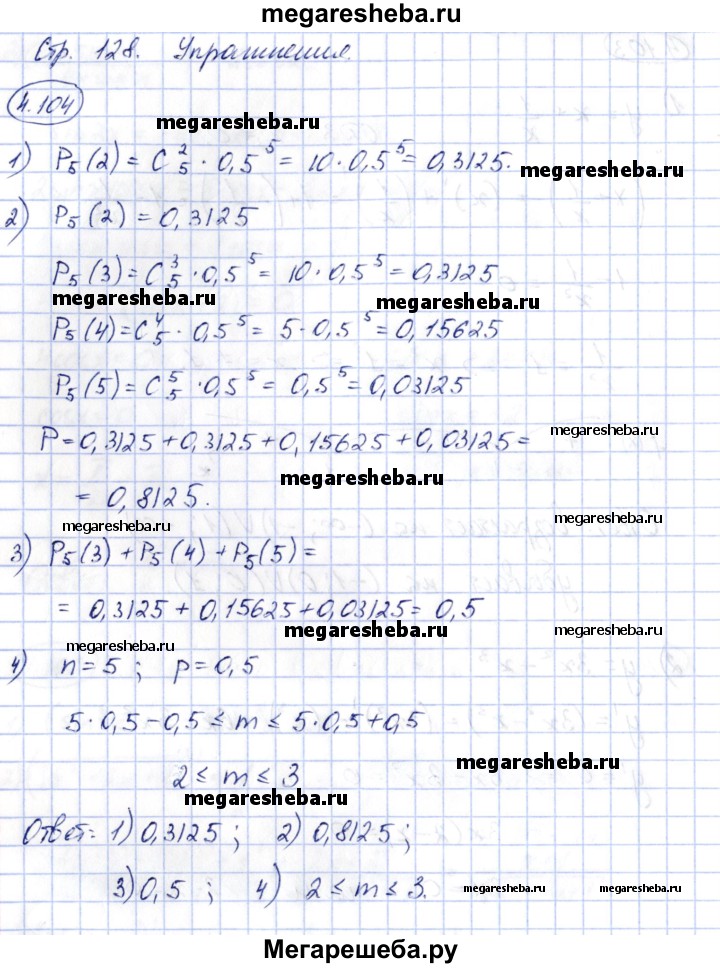 megaresheba.ru
Стр. 128. Упражнения.
4.104
megaresheba.ru
1) P₅(2) = C₅² · 0,5⁵ = 10 · 0,5⁵ = 0,3125. megaresheba.ru
2) P₅(2) = 0,3125
P₅(3) = C₅³ · 0,5⁵ = 10 · 0,5⁵ = 0,3125
megaresheba.ru megaresheba.ru
P₅(4) = C₅⁴ · 0,5⁵ = 5 · 0,5⁵ = 0,15625
P₅(5) = C₅⁵ · 0,5⁵ = 0,5⁵ = 0,03125
P = 0,3125 + 0,3125 + 0,15625 + 0,03125 = megaresheba.ru
megaresheba.ru
= 0,8125.
megaresheba.ru megaresheba.ru
3) P₅(3) + P₅(4) + P₅(5) =
= 0,3125 + 0,15625 + 0,03125 = 0,5
megaresheba.ru megaresheba.ru
megaresheba.ru
4) n = 5 ; p = 0,5
5 · 0,5 − 0,5 ≤ m ≤ 5 · 0,5 + 0,5
megaresheba.ru
2 ≤ m ≤ 3
megaresheba.ru
Ответ: 1) 0,3125 ; 2) 0,8125 ;
3) 0,5 ; 4) 2 ≤ m ≤ 3. megaresheba.ru megaresheba.ru
Мегарешеба.ру